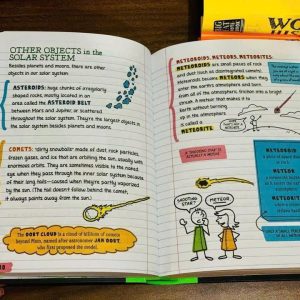 OTHER OBJECTS in the
SOLAR SYSTEM
Besides planets and moons, there are other
objects in our solar system:
ASTEROIDS: huge chunks of irregularly
shaped rocks, mostly located in an
area called the ASTEROID BELT
between Mars and Jupiter, or scattered
throughout space. They're the largest objects in
the solar system besides planets and moons.
COMETS: "dirty snowballs" made of dust, rock particles,
frozen gases, and ice that are orbiting the sun, usually with
enormous orbits. They are sometimes visible to the naked
eye when they pass through the inner solar system because
of their long tails—caused when they're partly vaporized
by the sun. (The tail doesn't follow behind the comet;
it always points away from the sun.)
The OORT CLOUD is a cloud of billions of comets
beyond Mars, named after astronomer JAN OORT,
who first proposed the model.
METEOROIDS, METEORS, METEORITES
METEOROIDS are small pieces of rock
and dust (such as disintegrated comets).
Meteoroids become METEORS when they
enter the earth's atmosphere and burn
from all of the atmospheric friction into a bright
streak. A meteor that makes it to
Earth without burning
up in the atmosphere
is called a
METEORITE.
A SHOOTING STAR IS
ACTUALLY A METEOR!
SHOOTING
STAR?
METEOR
METEOROID
METEOR